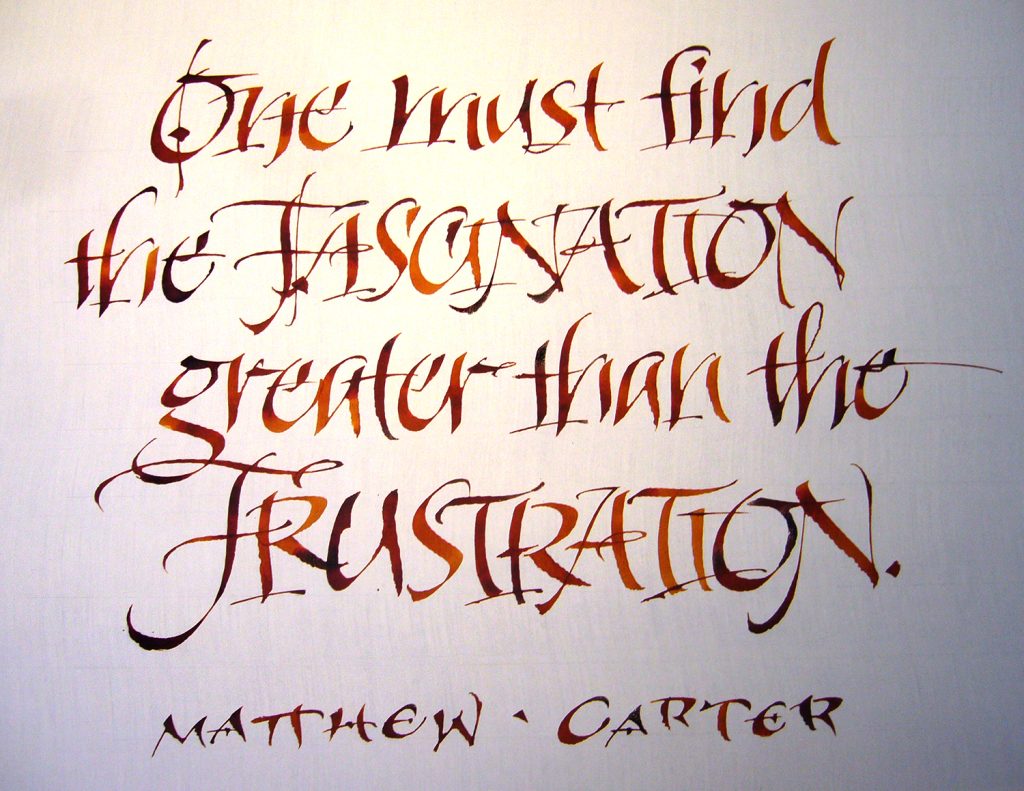 One must find
the FASCINATION
greater than the
FRUSTRATION.
MATTHEW · CARTER